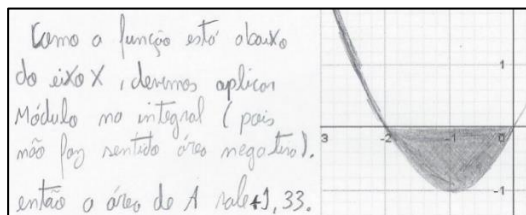 Como a função está abaixo
do eixo X, devemos aplicar
Módulo na integral (pois
não faz sentido área negativa).
então a área de A vale +1,33.
1
3
-2
-1
0
-1